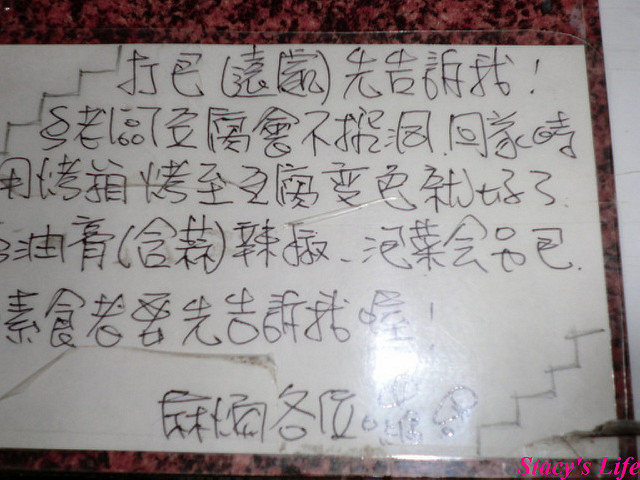 打包(遠處)先告訴我!
老闆豆腐會不挖洞.回家時
用烤箱烤至豆腐变色就好了.
油膏(含蒜)辣椒、泡菜会另包.
素食者要先告訴我喔!
麻煩各位
Stacy's Life